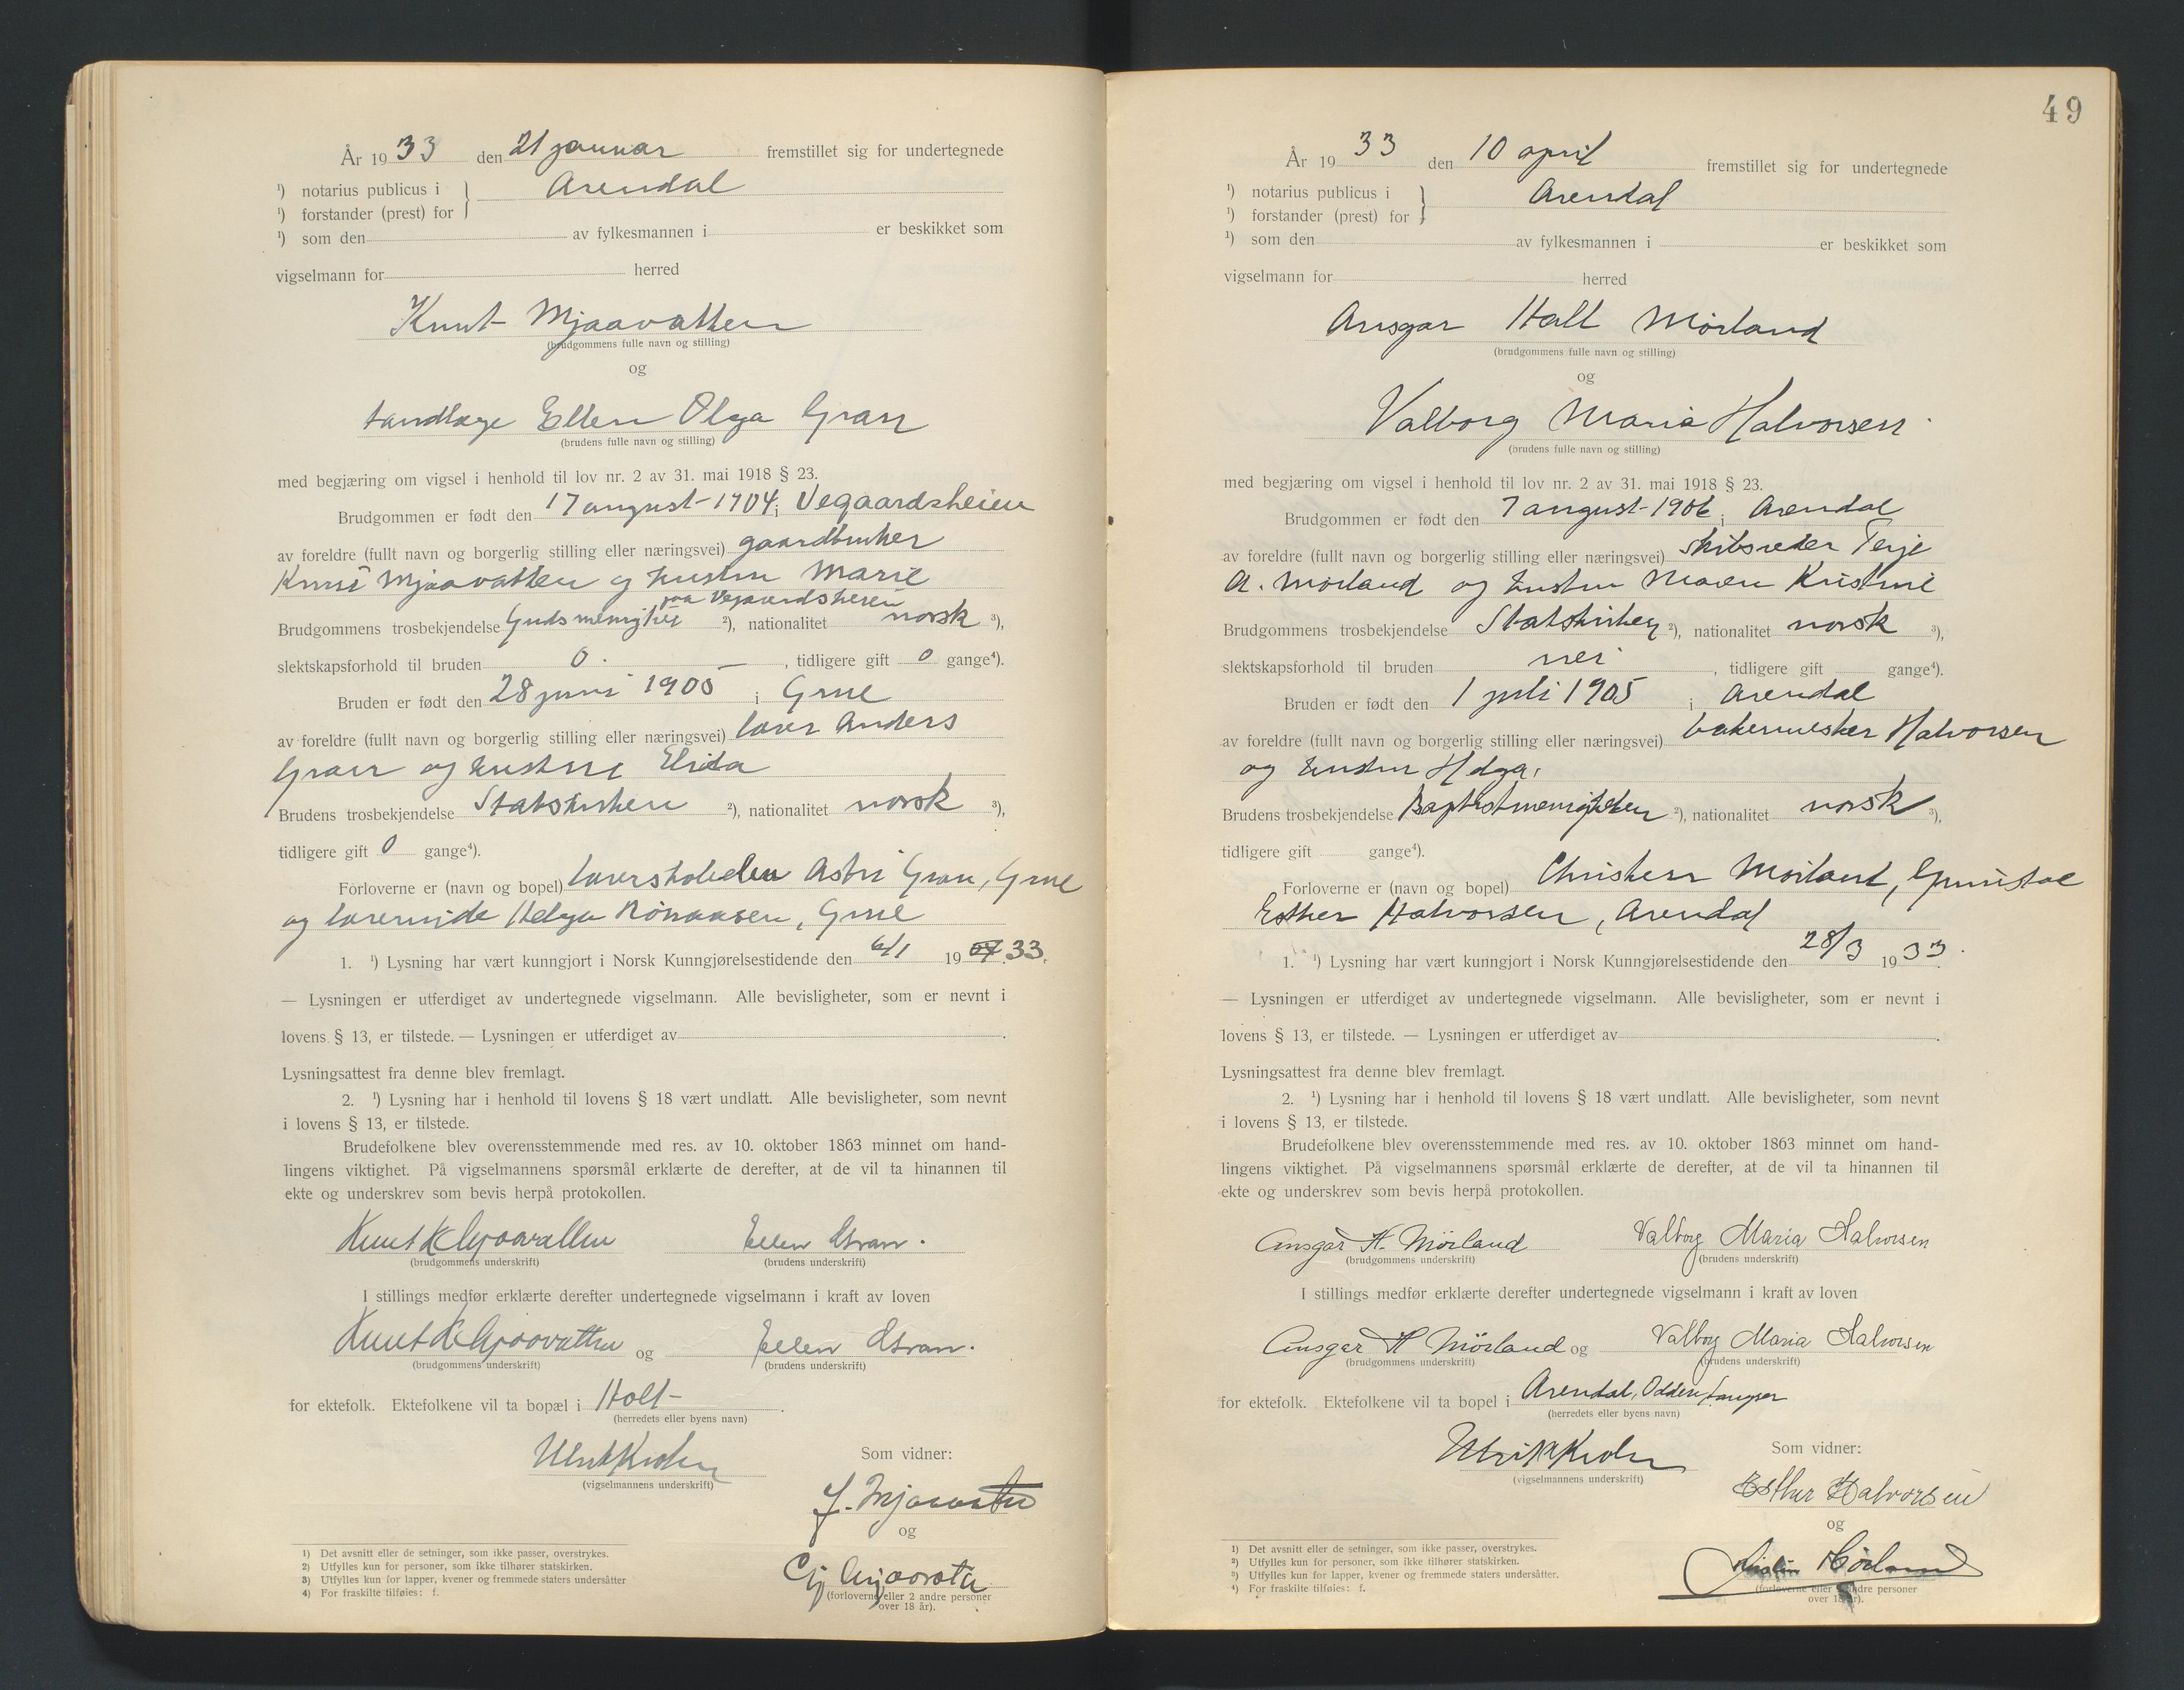 År 1933 den 21 januar fremstillet sig for undertegnede
¹) notarius publicus i } Arendal
¹) forstander (prest) for
¹) som den av fylkesmannen i er beskikket som
vigselmann for herred
Knut Mjaavatten
(brudgommens fulle navn og stilling)
og
tandlæge Ellen Olga Gran
(brudens fulle navn og stilling)
med begjæring om vigsel i henhold til lov nr. 2 av 31. mai 1918 § 23.
Brudgommen er født den 17 august 1904 i Vegaardsheien
av foreldre (fullt navn og borgerlig stilling eller næringsvei) gaardbruker
Knut Mjaavatten og hustru Marie
paa Vegaardsheien
Brudgommens trosbekjendelse Guds menighet ²), nationalitet norsk ³),
slektskapsforhold til bruden 0. — , tidligere gift 0 gange⁴).
Bruden er født den 28 juni 1905 i Grue
av foreldre (fullt navn og borgerlig stilling eller næringsvei) lærer Anders
Gran og hustru Elida
Brudens trosbekjendelse Statskirken ²), nationalitet norsk ³),
tidligere gift 0 gange⁴).
Forloverne er (navn og bopel) Astri Gran, Grue
og Helga Grue
1. ¹) Lysning har vært kunngjort i Norsk Kunngjørelsestidende den 6/1 19 33.
— Lysningen er utferdiget av undertegnede vigselmann. Alle bevisligheter, som er nevnt i
lovens § 13, er tilstede. — Lysningen er utferdiget av .
Lysningsattest fra denne blev fremlagt.
2. ¹) Lysning har i henhold til lovens § 18 vært undlatt. Alle bevisligheter, som nevnt
i lovens § 13, er tilstede.
Brudefolkene blev overensstemmende med res. av 10. oktober 1863 minnet om hand-
lingens viktighet. På vigselmannens spørsmål erklærte de derefter, at de vil ta hinannen til
ekte og underskrev som bevis herpå protokollen.
Knut K Mjaavatten Ellen Gran.
(brudgommens underskrift) (brudens underskrift)
I stillings medfør erklærte derefter undertegnede vigselmann i kraft av loven
Knut K Mjaavatten og Ellen Gran.
(brudgommens underskrift) (brudens underskrift)
for ektefolk. Ektefolkene vil ta bopæl i Holt .
(herredets eller byens navn)
Ulrik Krohn
(vigselmannens underskrift)
Som vidner:
J. Mjaavatn
og
Mjaavatn
(forloverne eller 2 andre personer
over 18 år).
1) Det avsnitt eller de setninger, som ikke passer, overstrykes.
2) Utfylles kun for personer, som ikke tilhører statskirken.
3) Utfylles kun for lapper, kvener og fremmede staters undersåtter
4) For fraskilte tilføies: f.
49
År 1933 den 10 april fremstillet sig for undertegnede
¹) notarius publicus i } Arendal
¹) forstander (prest) for
¹) som den av fylkesmannen i er beskikket som
vigselmann for herred
Ansgar Holt Mørland
(brudgommens fulle navn og stilling)
og
Valborg Maria Halvorsen
(brudens fulle navn og stilling)
med begjæring om vigsel i henhold til lov nr. 2 av 31. mai 1918 § 23.
Brudgommen er født den 7 august 1906 i Arendal
av foreldre (fullt navn og borgerlig stilling eller næringsvei) skibsreder Terje
A. Mørland og hustru Maren Kristine
Brudgommens trosbekjendelse Statskirken ²), nationalitet norsk ³),
slektskapsforhold til bruden nei , tidligere gift gange⁴).
Bruden er født den 1 juli 1905 i Arendal
av foreldre (fullt navn og borgerlig stilling eller næringsvei) bakermester Halvorsen
og hustru Helga.
Brudens trosbekjendelse Baptistmenigheten ²), nationalitet norsk ³),
tidligere gift gange⁴).
Forloverne er (navn og bopel) Mørland, Grimstad
Esther Halvorsen, Arendal
1. ¹) Lysning har vært kunngjort i Norsk Kunngjørelsestidende den 28/3 1933.
— Lysningen er utferdiget av undertegnede vigselmann. Alle bevisligheter, som er nevnt i
lovens § 13, er tilstede. — Lysningen er utferdiget av .
Lysningsattest fra denne blev fremlagt.
2. ¹) Lysning har i henhold til lovens § 18 vært undlatt. Alle bevisligheter, som nevnt
i lovens § 13, er tilstede.
Brudefolkene blev overensstemmende med res. av 10. oktober 1863 minnet om hand-
lingens viktighet. På vigselmannens spørsmål erklærte de derefter, at de vil ta hinannen til
ekte og underskrev som bevis herpå protokollen.
Ansgar H. Mørland Valborg Maria Halvorsen
(brudgommens underskrift) (brudens underskrift)
I stillings medfør erklærte derefter undertegnede vigselmann i kraft av loven
Ansgar H Mørland og Valborg Maria Halvorsen
(brudgommens underskrift) (brudens underskrift)
for ektefolk. Ektefolkene vil ta bopel i Arendal, Odden, Langsæ
(herredets eller byens navn)
Ulrik Krohn
(vigselmannens underskrift)
Som vidner:
Esther Halvorsen
og
Mørland
(forloverne eller 2 andre personer
over 18 år).
1) Det avsnitt eller de setninger, som ikke passer, overstrykes.
2) Utfylles kun for personer, som ikke tilhører statskirken.
3) Utfylles kun for lapper, kvener og fremmede staters undersåtter.
4) For fraskilte tilføies: f.